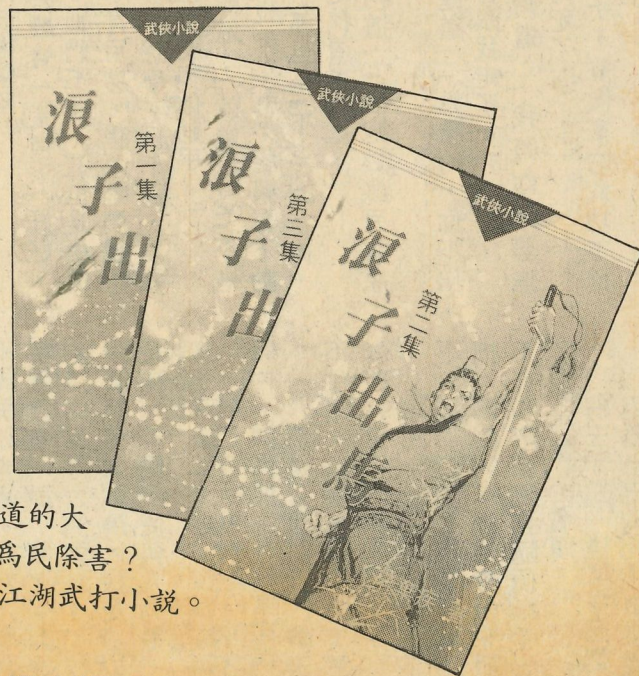 武俠小說
浪子出
第一集
武俠小說
浪子出
第三集
武俠小說
浪子出馬
第二集
道的大
爲民除害？
江湖武打小説。